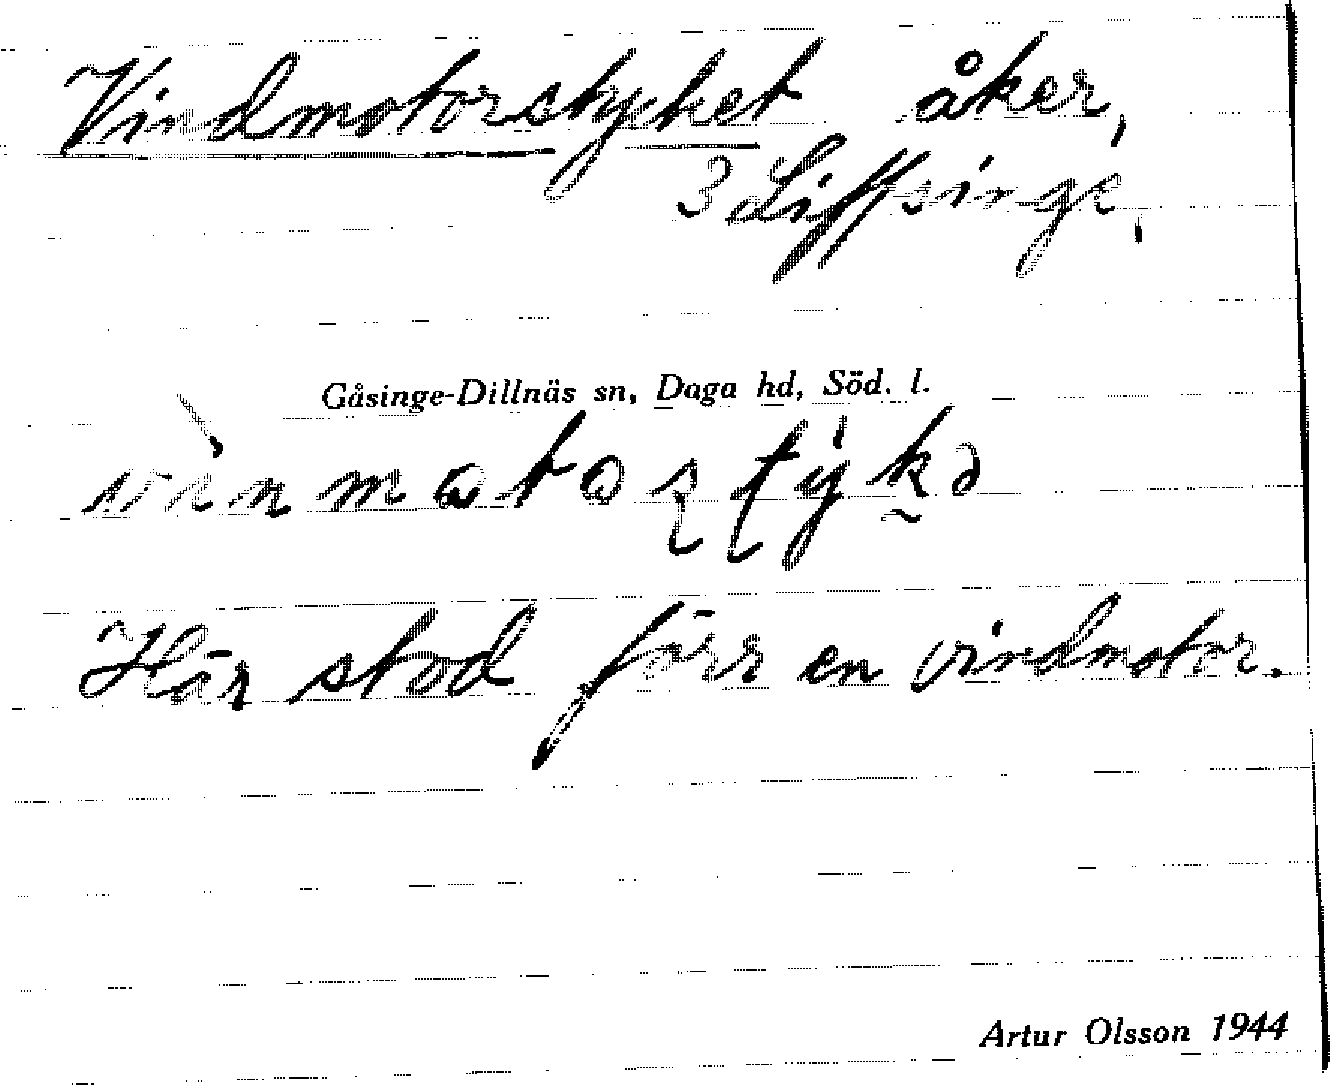 Vindmotorstycket åker,
3 Liffsinge,
Gåsinge-Dillnäs sn, Daga hd, Söd. l.
Här stod förr en vindmotor.
Artur Olsson 1944